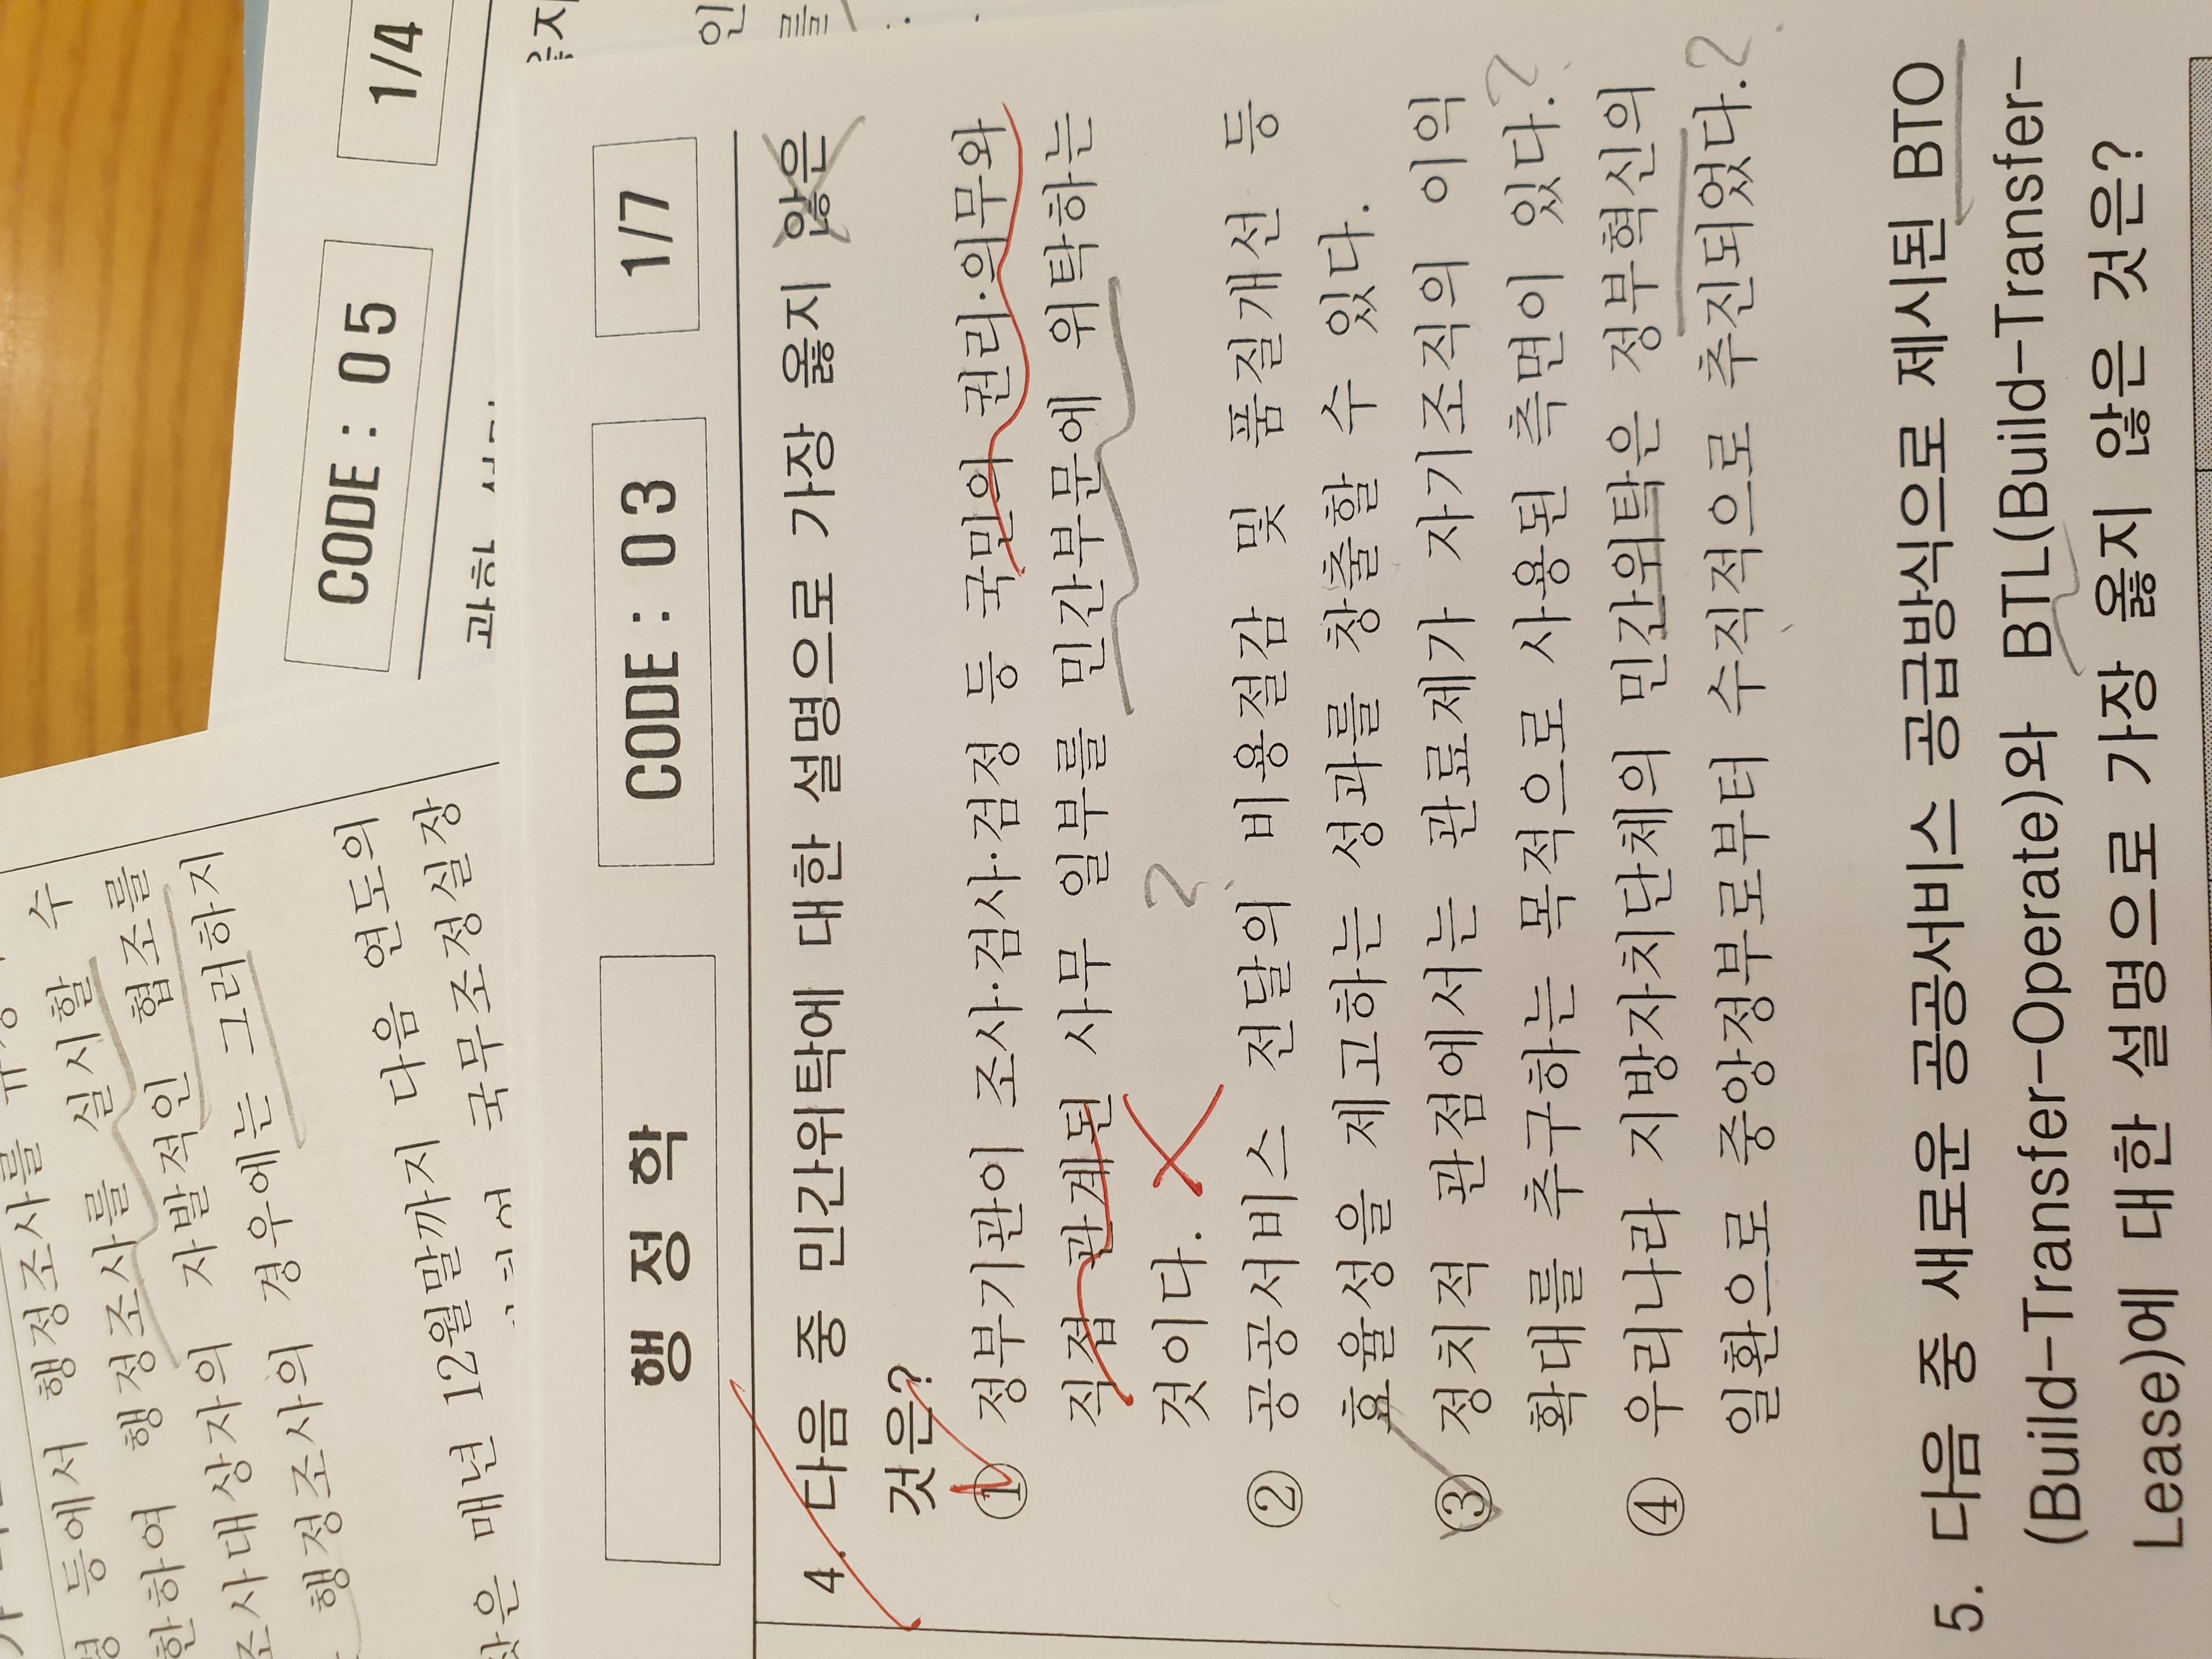 CODE : 05
1/4
과학
인
를
수
등에서 행정조사를
행정조사를 실시할
한하여 행정조사를
조사대상자의 자발적인 협조를
행정조사의 경우에는 그러하지
매년 12월말까지 다음 연도의
국무조정실장
행 정 학
CODE : 03
1/7
4. 다음 중 민간위탁에 대한 설명으로 가장 옳지 않은
것은?
① 정부기관이 조사·검사·검정 등 국민의 권리·의무와
직접 관계된 사무 일부를 민간부문에 위탁하는
것이다.
?
② 공공서비스 전달의 비용절감 및 품질개선 등
효율성을 제고하는 성과를 창출할 수 있다.
③ 정치적 관점에서는 관료제가 자기조직의 이익
확대를 추구하는 목적으로 사용된 측면이 있다. ?
④ 우리나라 지방자치단체의 민간위탁은 정부혁신의
일환으로 중앙정부로부터 수직적으로 추진되었다. ?
5. 다음 중 새로운 공공서비스 공급방식으로 제시된 BTO
(Build-Transfer-Operate)와 BTL(Build-Transfer-
Lease)에 대한 설명으로 가장 옳지 않은 것은?